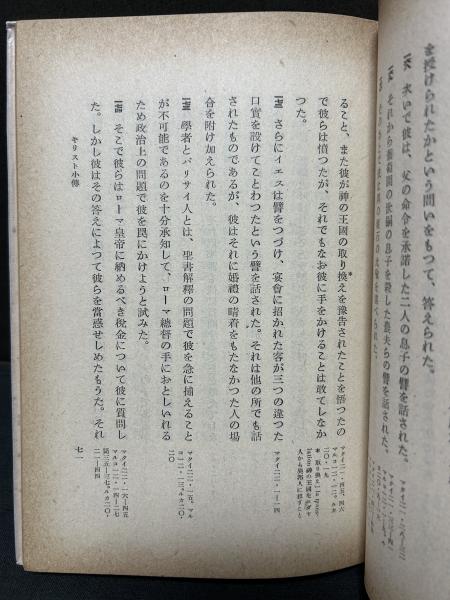 を授けられたかという問いをもつて、答えられた。
次いで彼は、父の命令を承諾した二人の息子の譬を話された。
それから葡萄園の世嗣の息子を殺した農夫らの譬を話された。
ること、また彼が神の王國の取り換えを豫告されたことを悟つたの
で彼らは憤つたが、それでもなお彼に手をかけることは敢てしなか
つた。
さらにイエスは譬をつづけ、宴會に招かれた客が三つの違つた
口實を設けてことわつたという譬を話された。それは他の所でも話
されたものであるが、彼はそれに婚禮の晴着をもたなかつた人の場
合を附け加えられた。
學者とパリサイ人とは、聖書解釋の問題で彼を急に捕えること
が不可能であるのを十分承知して、ローマ總督の手におとしいれる
ため政治上の問題で彼を罠にかけようと試みた。
そこで彼らはローマ皇帝に納めるべき税金について彼に質問し
た。しかし彼はその答えによつて彼らを賞感せしめたもうた。それ
マタイ二一・四五、四六
マルコ一二・一二、ルカ
二〇・一九
＊ 取り換え
神の王國をユダヤ
人から異邦人に移すこと
マタイ二二・一―一四
マタイ二二・一五、マル
コ一二・一三、ルカ二〇・
二〇
マタイ二二・一六―四五
マルコ一二・一四―二七
第三五―三七、ルカ二〇・
二一―四四
キリスト小傳
七一